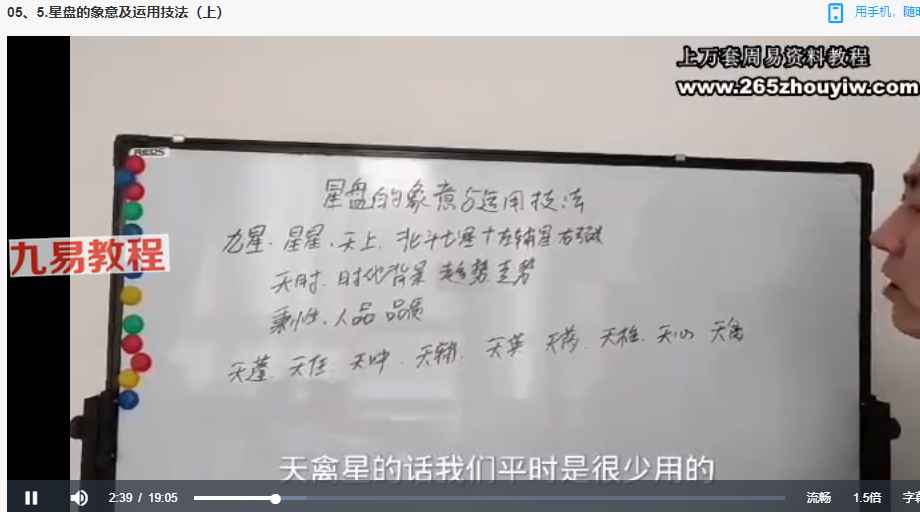 05、5.星盘的象意及运用技法（上）
用手机，随时
上万套周易资料教程
www.265zhouyiw.com
星盘的象意与运用技法
九星、星星、天上、北斗七星+左辅星右弼
天时、时代背景 趋势走势
秉性、人品 品质
天蓬、天任、天冲、天辅、天英 天芮、天柱、天心 天禽
九易教程
天禽星的话我们平时是很少用的
2:39 / 19:05
流畅
1.5倍
字幕